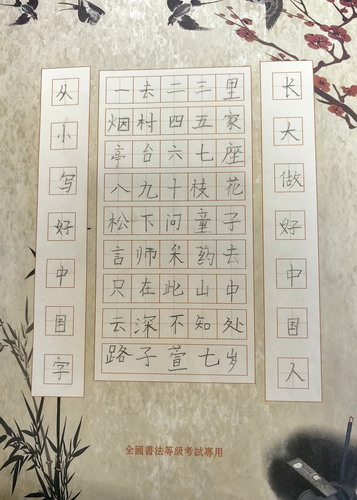 从小写好中国字
一去二三里
烟村四五家
亭台六七座
八九十枝花
松下问童子
言师采药去
只在此山中
云深不知处
路子萱七岁
长大做好中国人
全國書法等級考試專用